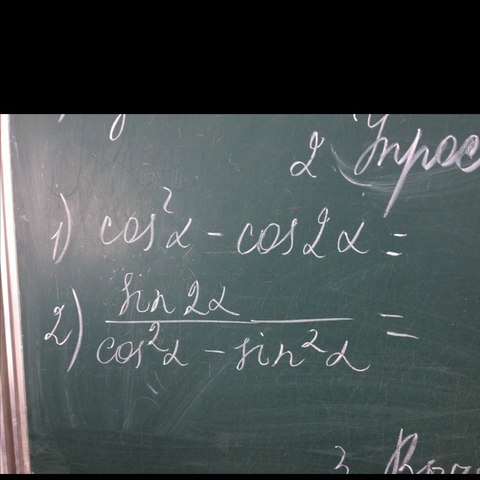 2. Упрос
1) cos²α - cos2α =
2) sin2α / cos²α - sin²α =
3